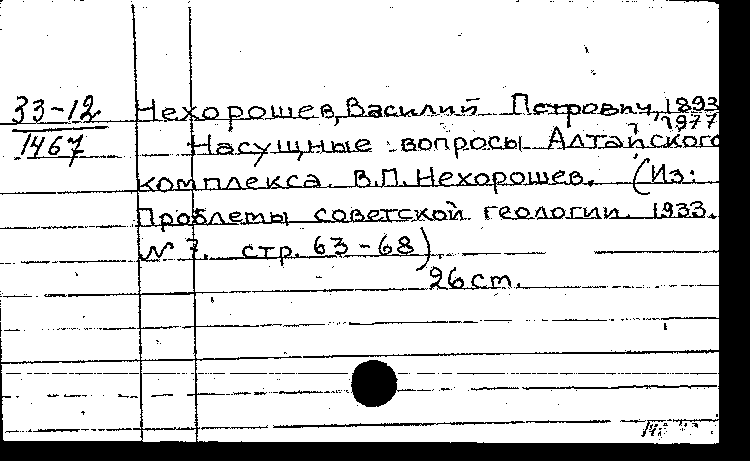 33-12
1467
Нехорошев, Василий Петрович, 1893
1977
Насущные вопросы Алтайского
комплекса. В.П. Нехорошев. (Из:
Проблемы советской геологии. 1933.
№ 7. стр. 63-68).
26 cm.